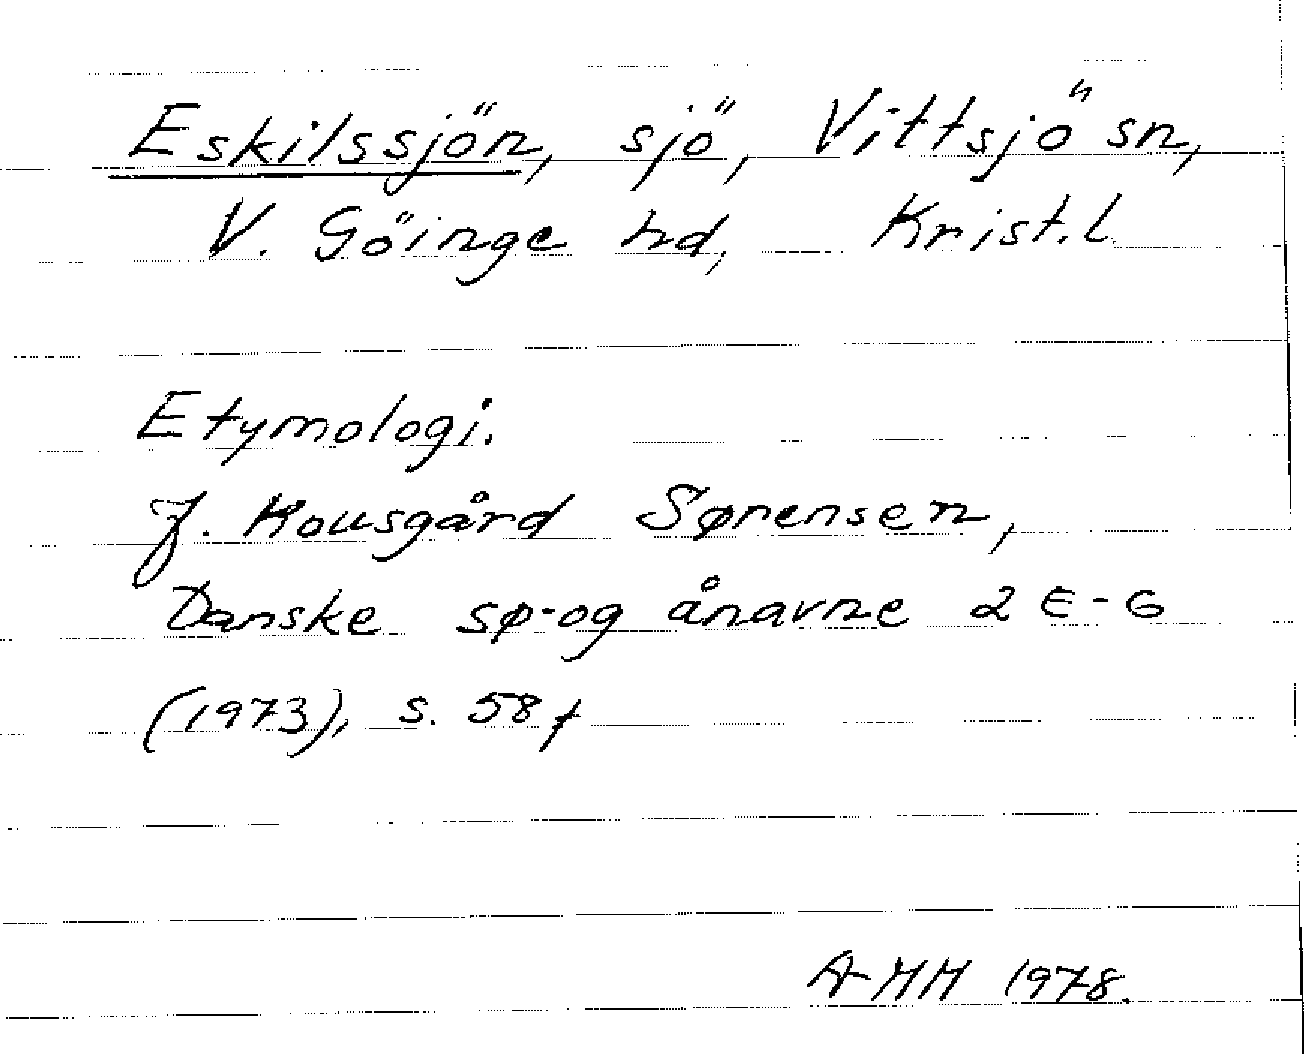 Eskilssjön, sjö, Vittsjö sn,
V. Göinge hd, Krist. l
Etymologi.
J. Kousgård Sørensen,
Danske sø- og ånavne 2 E-G
(1973), s. 58 f
A-MH 1978.